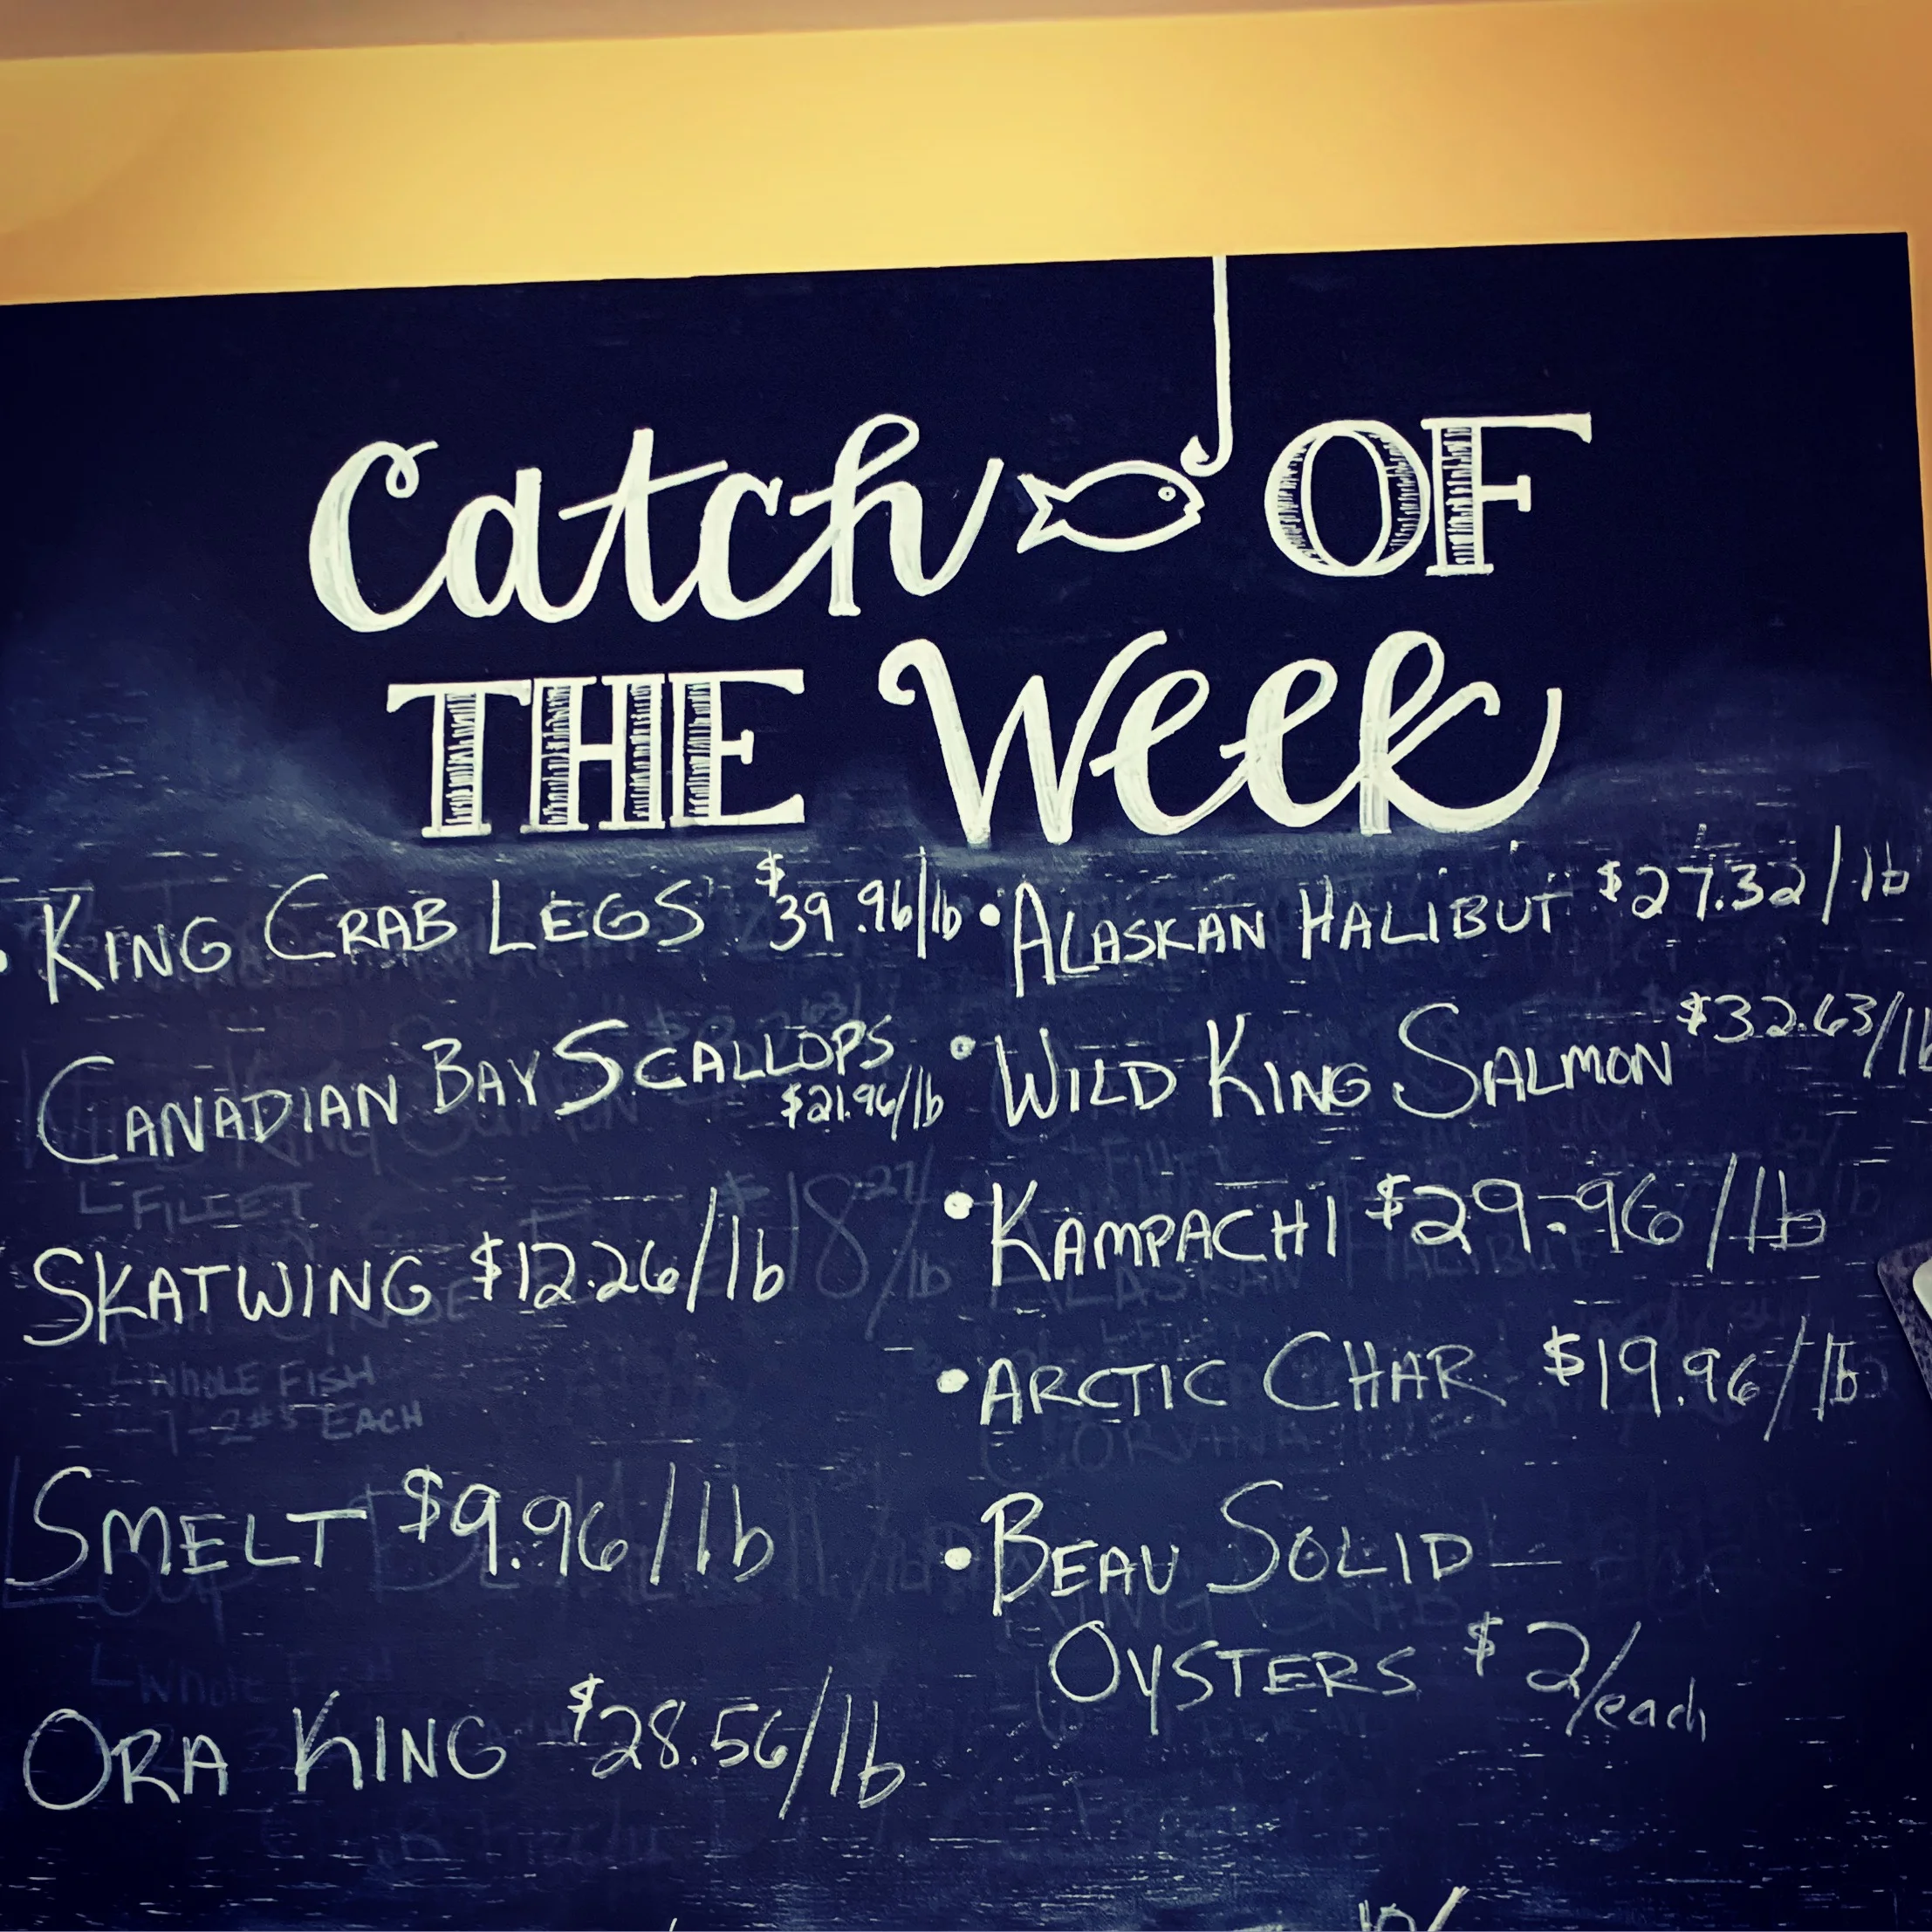 Catch OF
THE Week
• KING CRAB LEGS $39.96/lb
CANADIAN BAY SCALLOPS
$21.96/lb
FILLET
SKATWING $12.26/lb
WHOLE FISH
EACH
SMELT $9.96/lb
ORA KING $28.56/lb
• ALASKAN HALIBUT $27.32/lb
• WILD KING SALMON $32.63/lb
• KAMPACHI $29.96/lb
• ARCTIC CHAR $19.96/lb
• BEAU SOLID—
OYSTERS $2/each